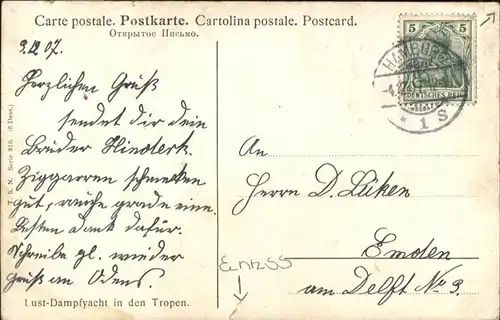 Carte postale. Postkarte. Cartolina postale. Postcard.
Открытое Письмо.
3.12.07.
Herzlichen Gruß
sendet dir dein
Bruder Hinderk.
Ziggarren schmecken
gut, rauche grade eine.
Besten Dank dafür.
Schreibe gl. wieder
Gruß an Odens.
T. S. N. Serie 810. (6 Dess.)
Lust-Dampfyacht in den Tropen.
5 5
DEUTSCHES REICH
HAMBURG
* 1 S
An
Herrn D. Lüken
Emden
am Delft No 3.